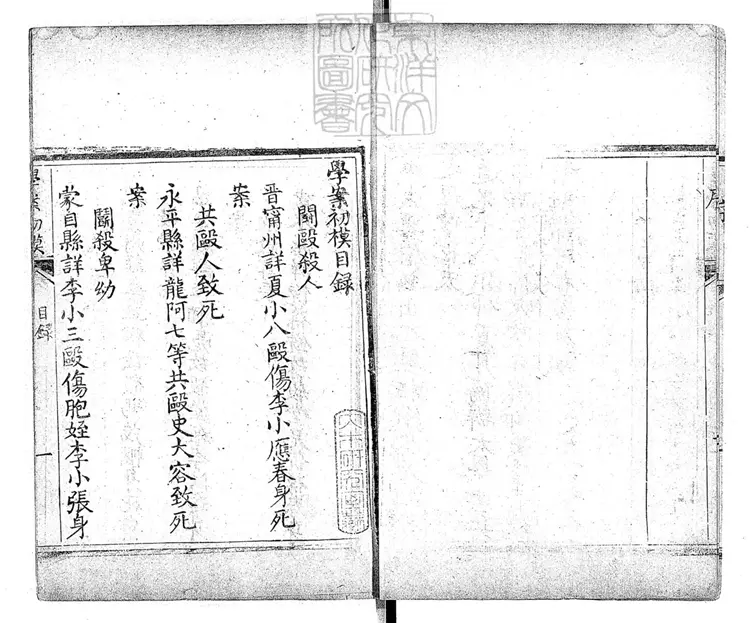 學案初模目録
鬪毆殺人
晋甯州詳夏小八毆傷李小應春身死
案
共毆人致死
永平縣詳龍阿七等共毆史大容致死
案
鬪殺卑幼
蒙自縣詳李小三毆傷胞姪李小張身
學案初模
目録
一
東洋文
化研究
所圖書